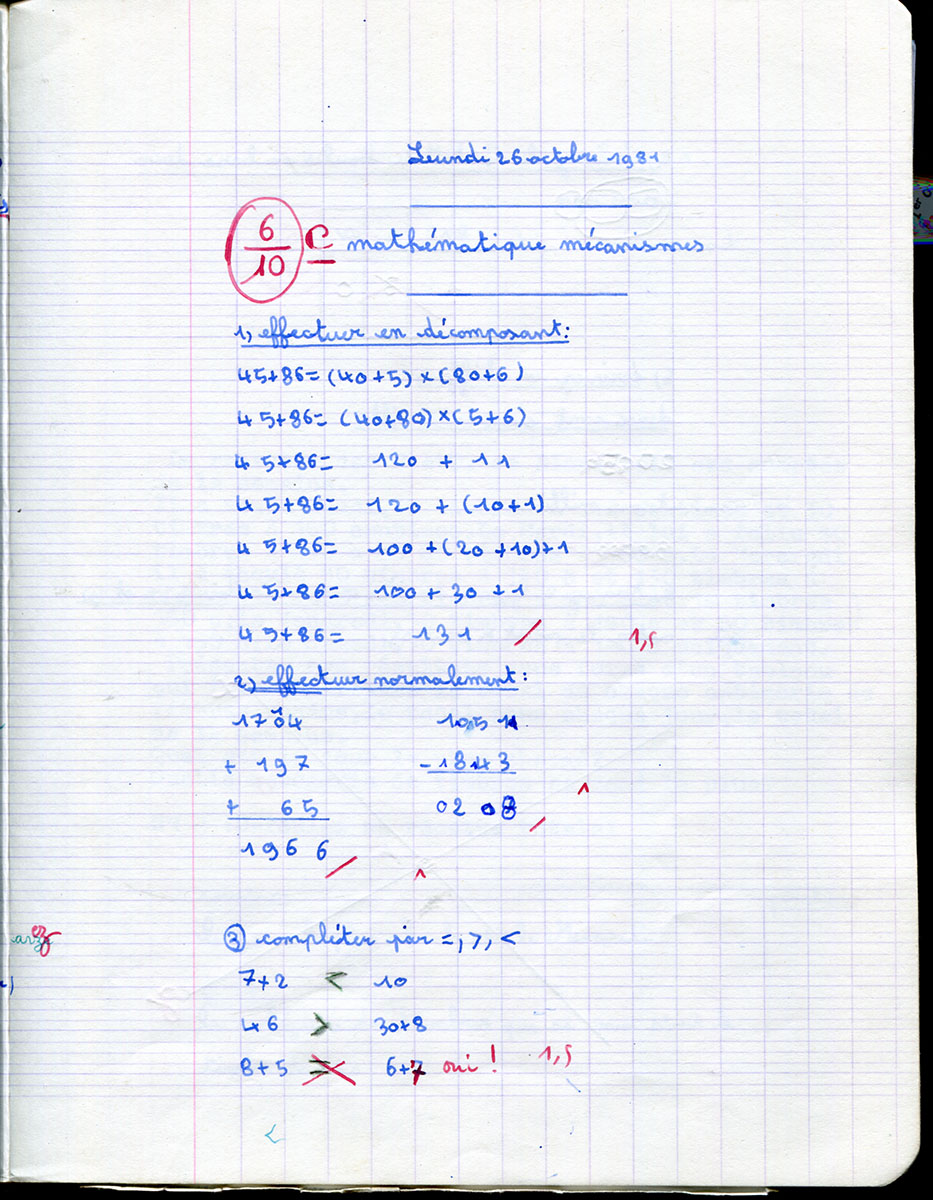 Leundi 26 octobre 1981
6/10 C mathématique mécanismes
1) effectuer en décomposant:
45+86=(40+5)×(80+6)
45+86=(40+80)×(5+6)
45+86= 120 + 11
45+86= 120 + (10+1)
45+86= 100 +(20+10)+1
45+86= 100 + 30 + 1
45+86= 131 / 1,5
2) effectuer normalement:
1704 1051
+ 197 -1843
+ 65 0208
1966
3) compléter par =, >, <
7+2 < 10
46 > 30+8
8+5 = 6+7 oui ! 1,5
<